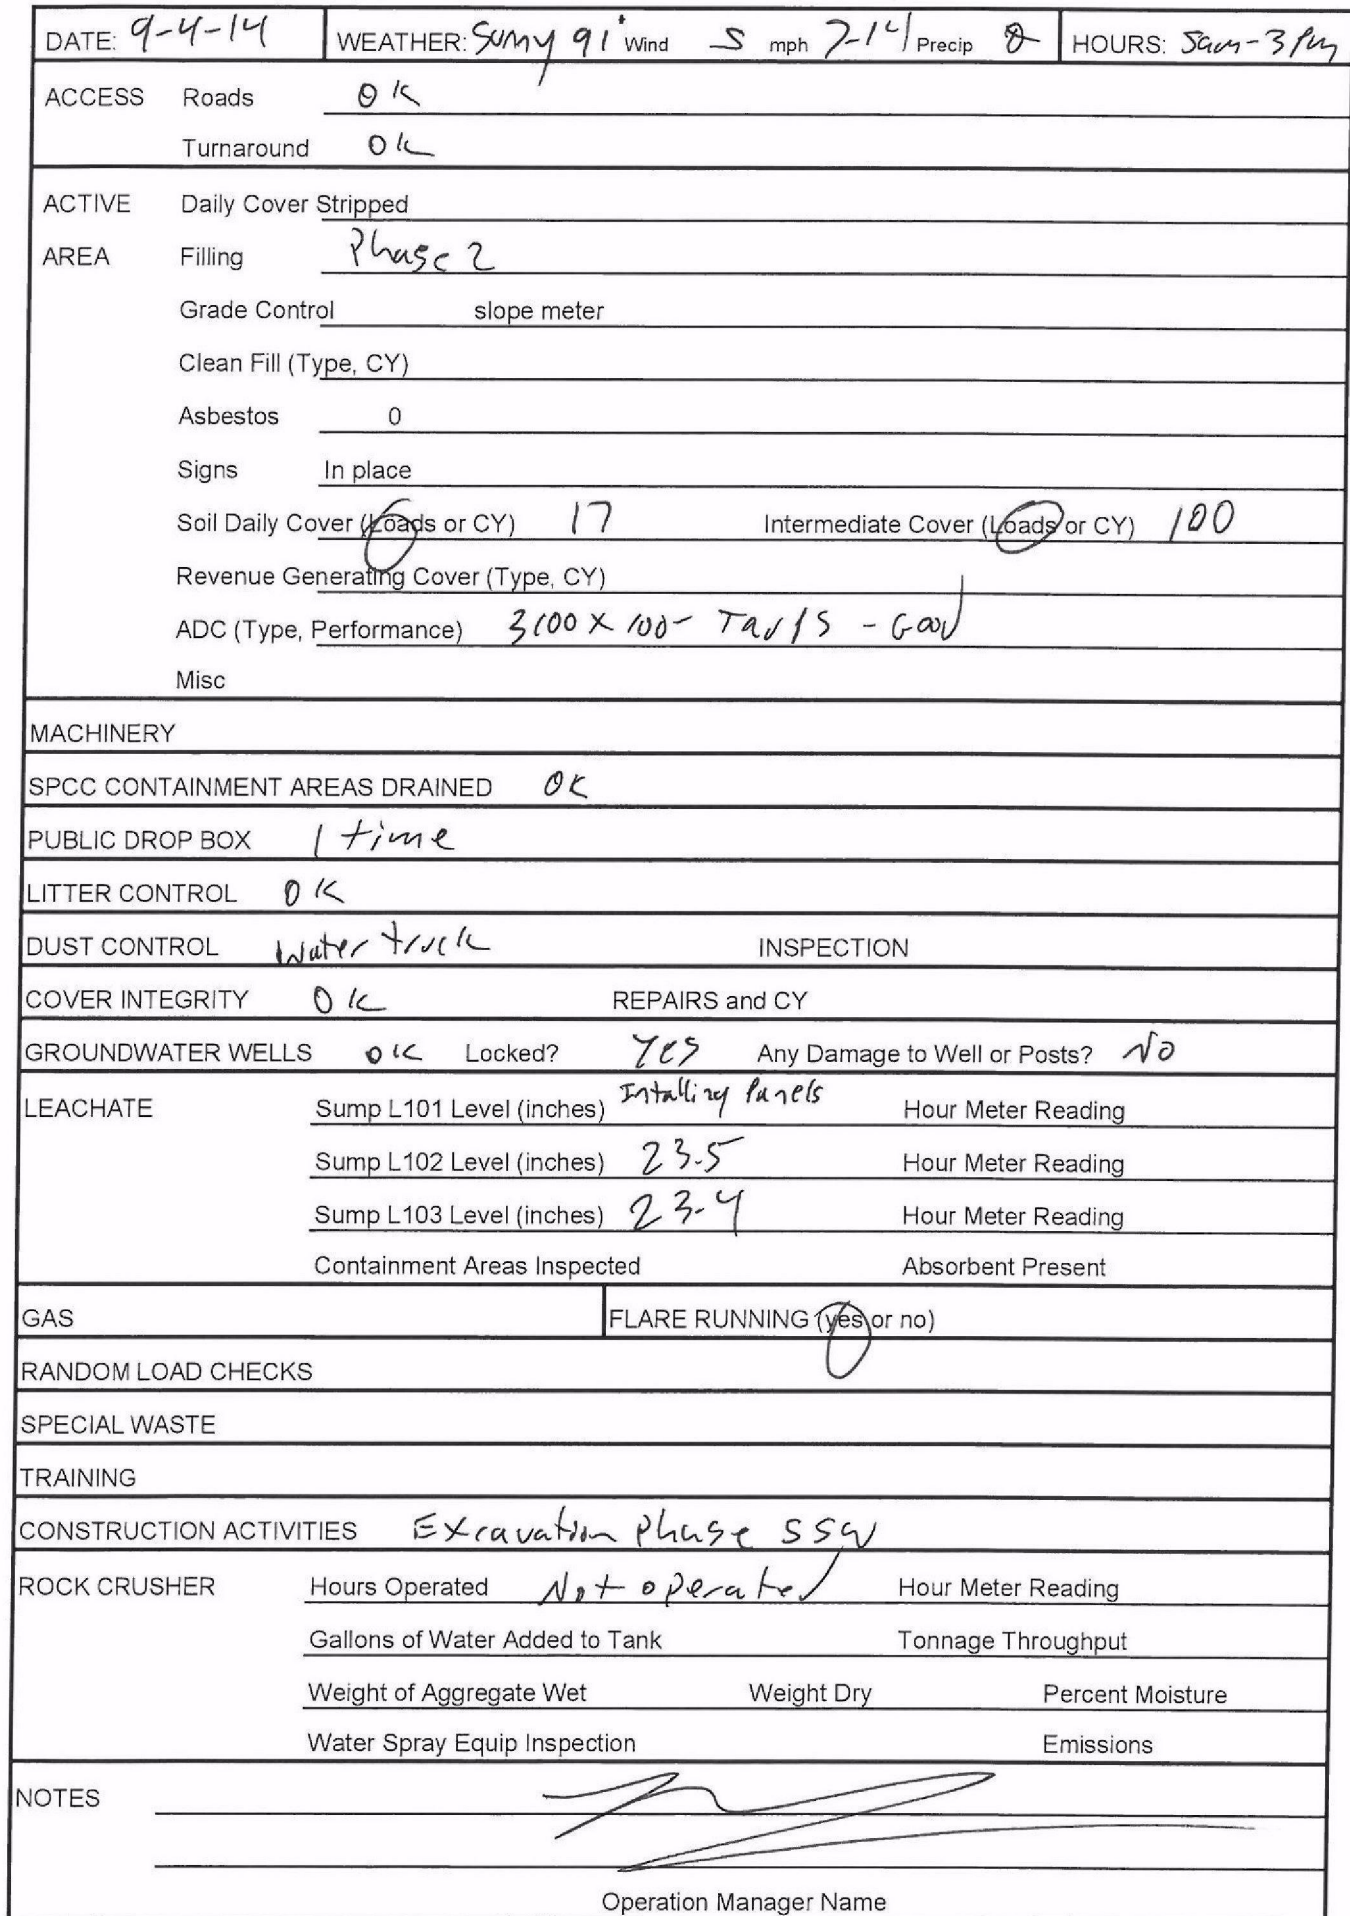 DATE: 9-4-14 WEATHER: Sunny 91° Wind S mph 7-14 Precip 0 HOURS: 5am-3pm
ACCESS Roads OK
Turnaround OK
ACTIVE Daily Cover Stripped
AREA Filling Phase 2
Grade Control slope meter
Clean Fill (Type, CY)
Asbestos 0
Signs In place
Soil Daily Cover (Loads or CY) 17 Intermediate Cover (Loads or CY) 100
Revenue Generating Cover (Type, CY)
ADC (Type, Performance) 100 x 100- Tarps - Good
Misc
MACHINERY
SPCC CONTAINMENT AREAS DRAINED OK
PUBLIC DROP BOX 1 time
LITTER CONTROL OK
DUST CONTROL Water truck INSPECTION
COVER INTEGRITY OK REPAIRS and CY
GROUNDWATER WELLS OK Locked? Yes Any Damage to Well or Posts? No
LEACHATE Sump L101 Level (inches) Intalling Panels Hour Meter Reading
Sump L102 Level (inches) 23.5 Hour Meter Reading
Sump L103 Level (inches) 23.4 Hour Meter Reading
Containment Areas Inspected Absorbent Present
GAS FLARE RUNNING (yes or no)
RANDOM LOAD CHECKS
SPECIAL WASTE
TRAINING
CONSTRUCTION ACTIVITIES Excavation Phase
ROCK CRUSHER Hours Operated Not operated Hour Meter Reading
Gallons of Water Added to Tank Tonnage Throughput
Weight of Aggregate Wet Weight Dry Percent Moisture
Water Spray Equip Inspection Emissions
NOTES
Operation Manager Name